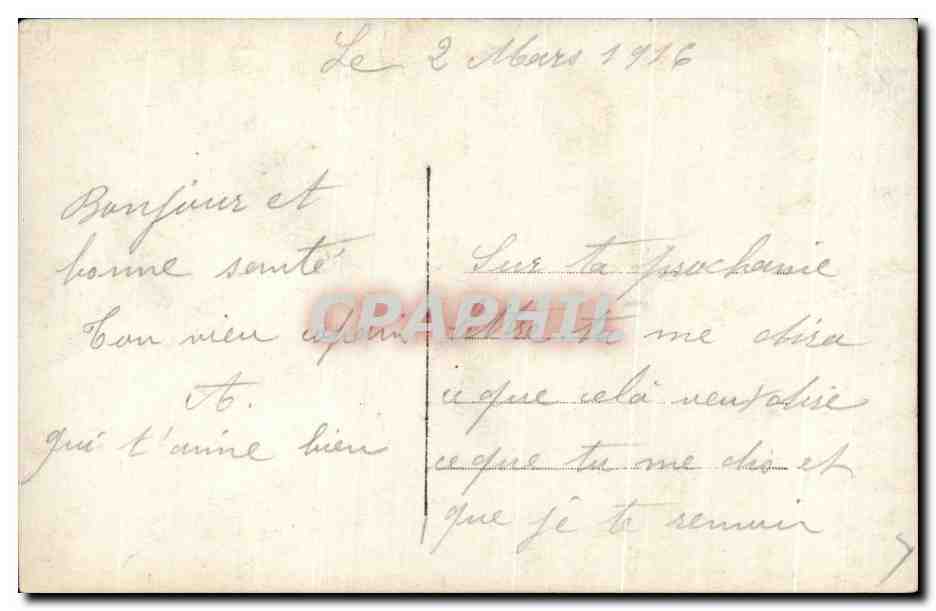 Le 2 Mars 1916
Bonjour et
bonne santé
Ton vieu copain
A.
qui t'aime bien
Sur ta prochaine
lettre tu me dira
ce que celà veut dire
ce que tu me dis et
que je te
CPAPHIL